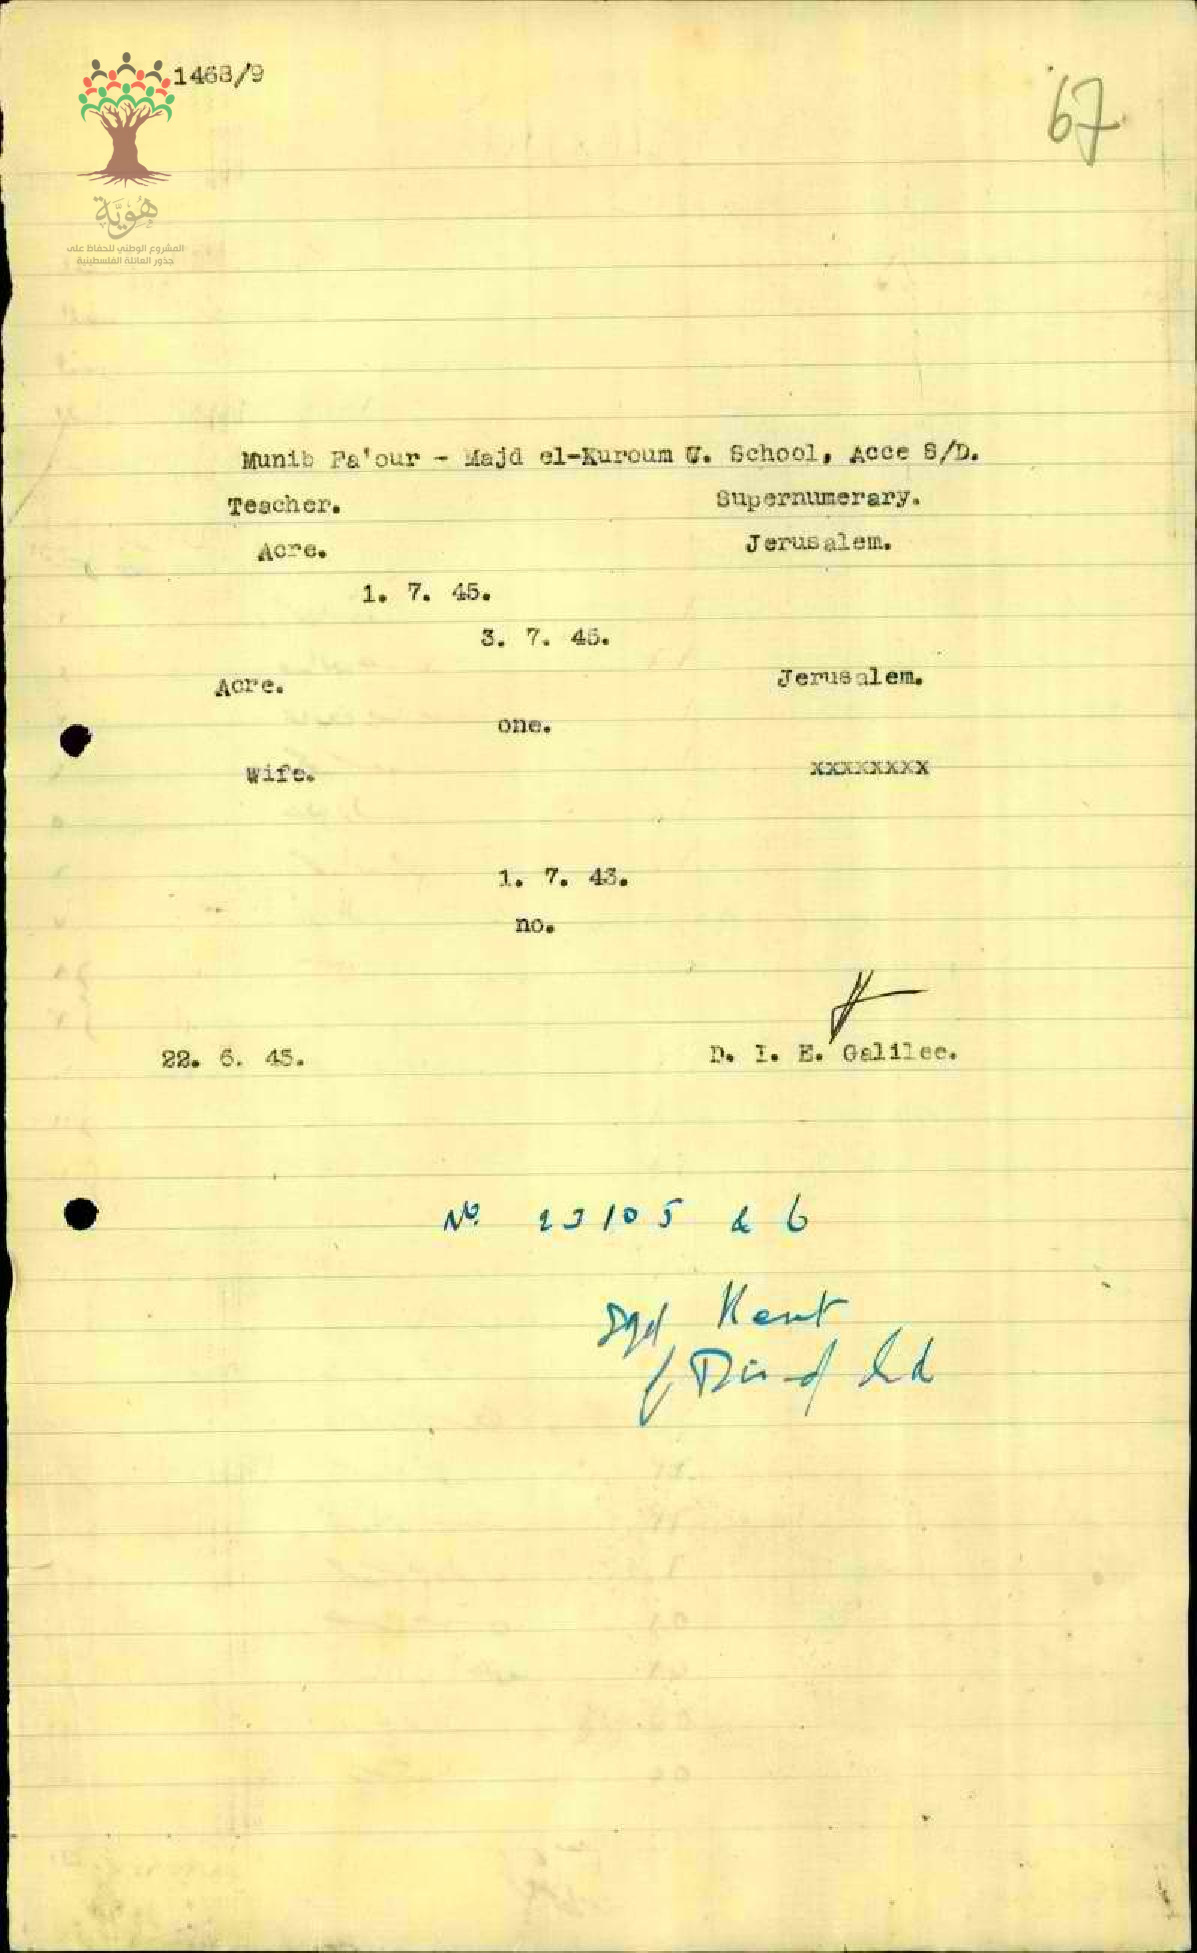 1468/9
67
هُوِيَّة
المشروع الوطني للحفاظ على
جذور العائلة الفلسطينية
Munib Fa'our - Majd el-Kuroum U. School, Acce S/D.
Teacher. Supernumerary.
Acre. Jerusalem.
1. 7. 45.
3. 7. 45.
Acre. Jerusalem.
one.
Wife. xxxxxxxx
1. 7. 43.
no.
22. 6. 45. D. I. E. Galilee.
No. 23105 & 6
Sgd Kent
f/ Dir of Ed